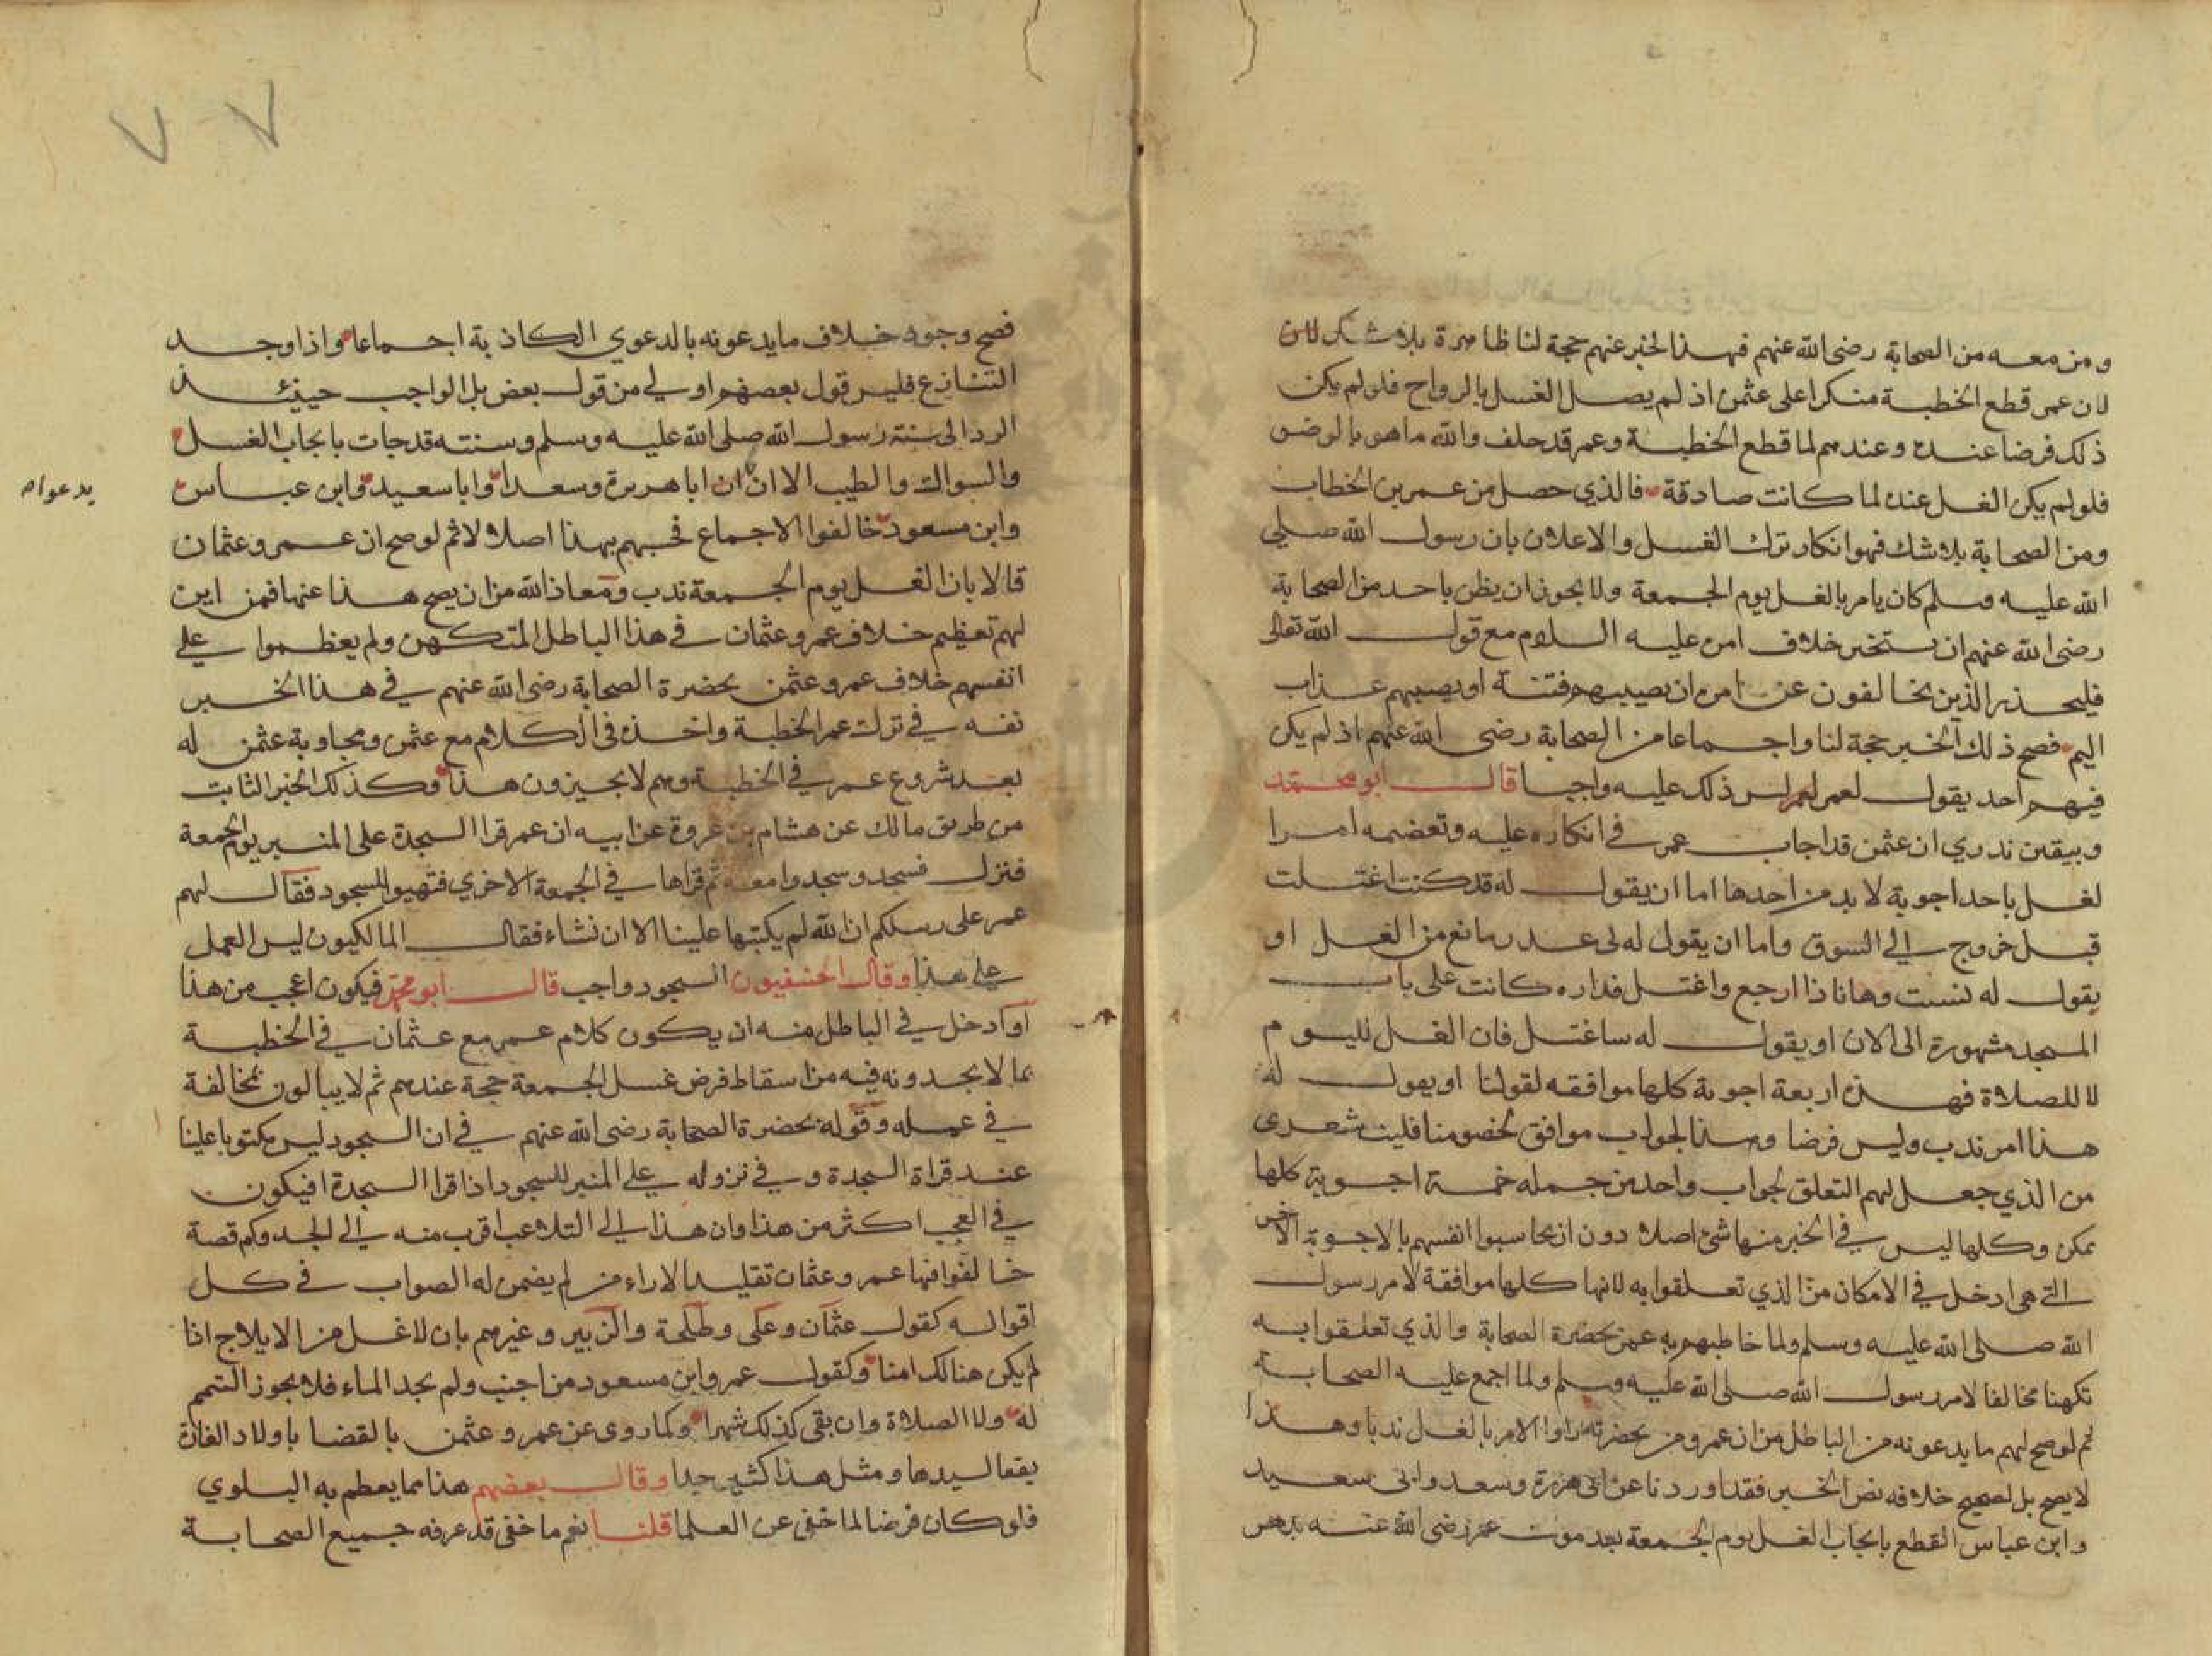 ومن معه من الصحابة رضي الله عنهم فهذا الخبر عنهم حجة لنا ظاهرة بلا شك لان
لان عمر قطع الخطبة منكرا على عثمن اذ لم يصل الغسل بالرواح فلو لم يكن
ذلك فرضا عنده وعندهم لما قطع الخطبة وعمر قد حلف والله ما هو بالوضو
فلو لم يكن الغسل عنده لما كانت صادقة فالذي حصل من عمر بن الخطاب
ومن الصحابة بلا شك فهو انكار ترك الغسل والاعلان بان رسول الله صلى
الله عليه وسلم كان يامر بالغسل يوم الجمعة ولا يجوز ان يظن باحد من الصحابة
رضي الله عنهم ان يستخبر خلاف امره عليه السلام مع قول الله تعالى
فليحذر الذين يخالفون عن امره ان تصيبهم فتنة او يصيبهم عذاب
اليم فصح ذلك الخبر حجة لنا واجماعا من الصحابة رضي الله عنهم اذ لم يكن
فيهم احد يقول لعمر ليس ذلك عليه واجبا قال ابو محمد
وبيقين ندري ان عثمن قد اجاب عمر في انكاره عليه وتعضمه امرا
لغسل باحد اجوبة لا بد من احدها اما ان يقول له قد كنت اغتسلت
قبل خروج الى السوق واما ان يقول له لى عذر مانع من الغسل او
يقول له نسيت وهانا ذا ارجع واغتسل فداره كانت على باب
المسجد مشهورة الى الان او يقول له ساغتسل فان الغسل لليوم
لا للصلاة فهذه اربعة اجوبة كلها موافقه لقولنا او يقول له
هذا امر ندب وليس فرضا وهذا الجواب موافق لخصومنا فليت شعري
من الذي جعل لهم التعلق لجواب واحد من جمله خمسة اجوبة كلها
ممكن وكلها ليس في الخبر منها شئ اصلا دون ان يحاسبوا انفسهم بالاجوبة الاخر
التي هي ادخل في الامكان من الذي تعلقوا به لانها كلها موافقة لامر رسول
الله صلى الله عليه وسلم ولما خاطبهم به عمر بحضرة الصحابة والذي تعلقوا به
تكهنا مخالفا لامر رسول الله صلى الله عليه وسلم ولما اجمع عليه الصحابة
ثم لو صح لهم ما يدعونه من الباطل من ان عمر ومن بحضرته راوا الامر بالغسل ندبا وهذا
لا يصح بل الصحيح خلافه نص الخبر فقد اوردنا عن ابي هريرة وسعد وابي سعيد
وابن عباس القطع بايجاب الغسل يوم الجمعة بعد موت عمر رضي الله عنه بدهر
فصح وجود خلاف ما يدعونه بالدعوي الكاذبة اجماعا واذا وجد
التنازع فليس قول بعضهم اولي من قول بعض بل الواجب حينئذ
الرد الى سنة رسول الله صلى الله عليه وسلم وسنته قد جات بايجاب الغسل
والسواك والطيب الا ان ان ابا هريرة وسعدا وابا سعيد وابن عباس
يدعواه
وابن مسعود خالفوا الاجماع فحسبهم بهذا اصلالا ثم لو صح ان عمر وعثمان
قالا بان الغسل يوم الجمعة ندب ومعاذ الله من ان يصح هذا عنها فمن اين
لهم تعظيم خلاف عمر وعثمان في هذا الباطل المتكهن ولم يعظموا علي
انفسهم خلاف عمر وعثمن بحضرة الصحابة رضي الله عنهم في هذا الخبر
نفسه في ترك عمر الخطبة واخذه في الكلام مع عثمن ومجاوبة عثمن له
بعد شروع عمر في الخطبة وهم لا يجيزون هذا وكذلك الخبر الثابت
من طريق مالك عن هشام بن عروة عن ابيه ان عمر قرا السجدة على المنبر يوم الجمعة
فنزل فسجد وسجدوا معه ثم قراها في الجمعة الاخري فتهيوا للسجود فقال لهم
عمر على رسلكم ان الله لم يكتبها علينا الا ان نشاء فقال المالكيون ليس العمل
علي هذا وقال الحنفيون السجود واجب قال ابو محمد فيكون اعجب من هذا
او ادخل في الباطل منه ان يكون كلام عمر مع عثمان في الخطبة
بما لا يجدونه فيه من اسقاط فرض غسل الجمعة حجة عندهم ثم لا يبالون بمخالفة
في عمله وقوله بحضرة الصحابة رضي الله عنهم في ان السجود ليس مكتوبا علينا
عند قراة السجدة وفي نزوله علي المنبر للسجود اذا قرا السجدة افيكون
في العجب اكثر من هذا وان هذا الي التلاعب اقرب منه الي الجد وكم قصة
خالفوا فيها عمر وعثمان تقليدا لاراء من لم يضمن له الصواب في كل
اقواله كقول عثمان وعلى وطلحة والزبير وغيرهم بان لا غسل من الايلاج اذا
لم يكن هنالك امنا وكقول عمر وابن مسعود من اجنب ولم يجد الماء فلا يجوز التيمم
له ولا الصلاة وان بقى كذلك شهرا وكما روى عن عمر وعثمن بالقضا باولاد الغارة
يقعا لسيدها ومثل هذا كثير جدا وقال بعضهم هذا مما يعظم به البلوي
فلو كان فرضا لما خفى عن العلما قلنا نعم ما خفى قد عرفه جميع الصحابة